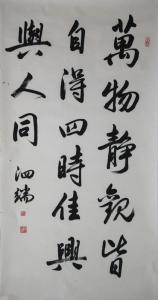 萬物静觀皆
自得四時佳興
與人同
泗端